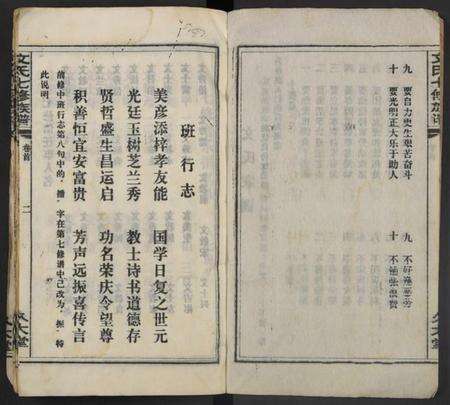 九 要自力更生艰苦奋斗
十 要光明正大乐于助人
九 不好逸恶劳
十 不
文氏七修族谱
文氏七修族谱 卷首 二
班行志
美彦添梓孝友能 国学日复之世元
光廷玉树芝兰秀 教士诗书道德存
贤哲盛生昌运启 功名荣庆令望尊
积善恒宜安富贵 芳声远振喜传言
前修中班行志第八句中的，播，字在第七修谱中已改为，振，特
此说明。
大堂